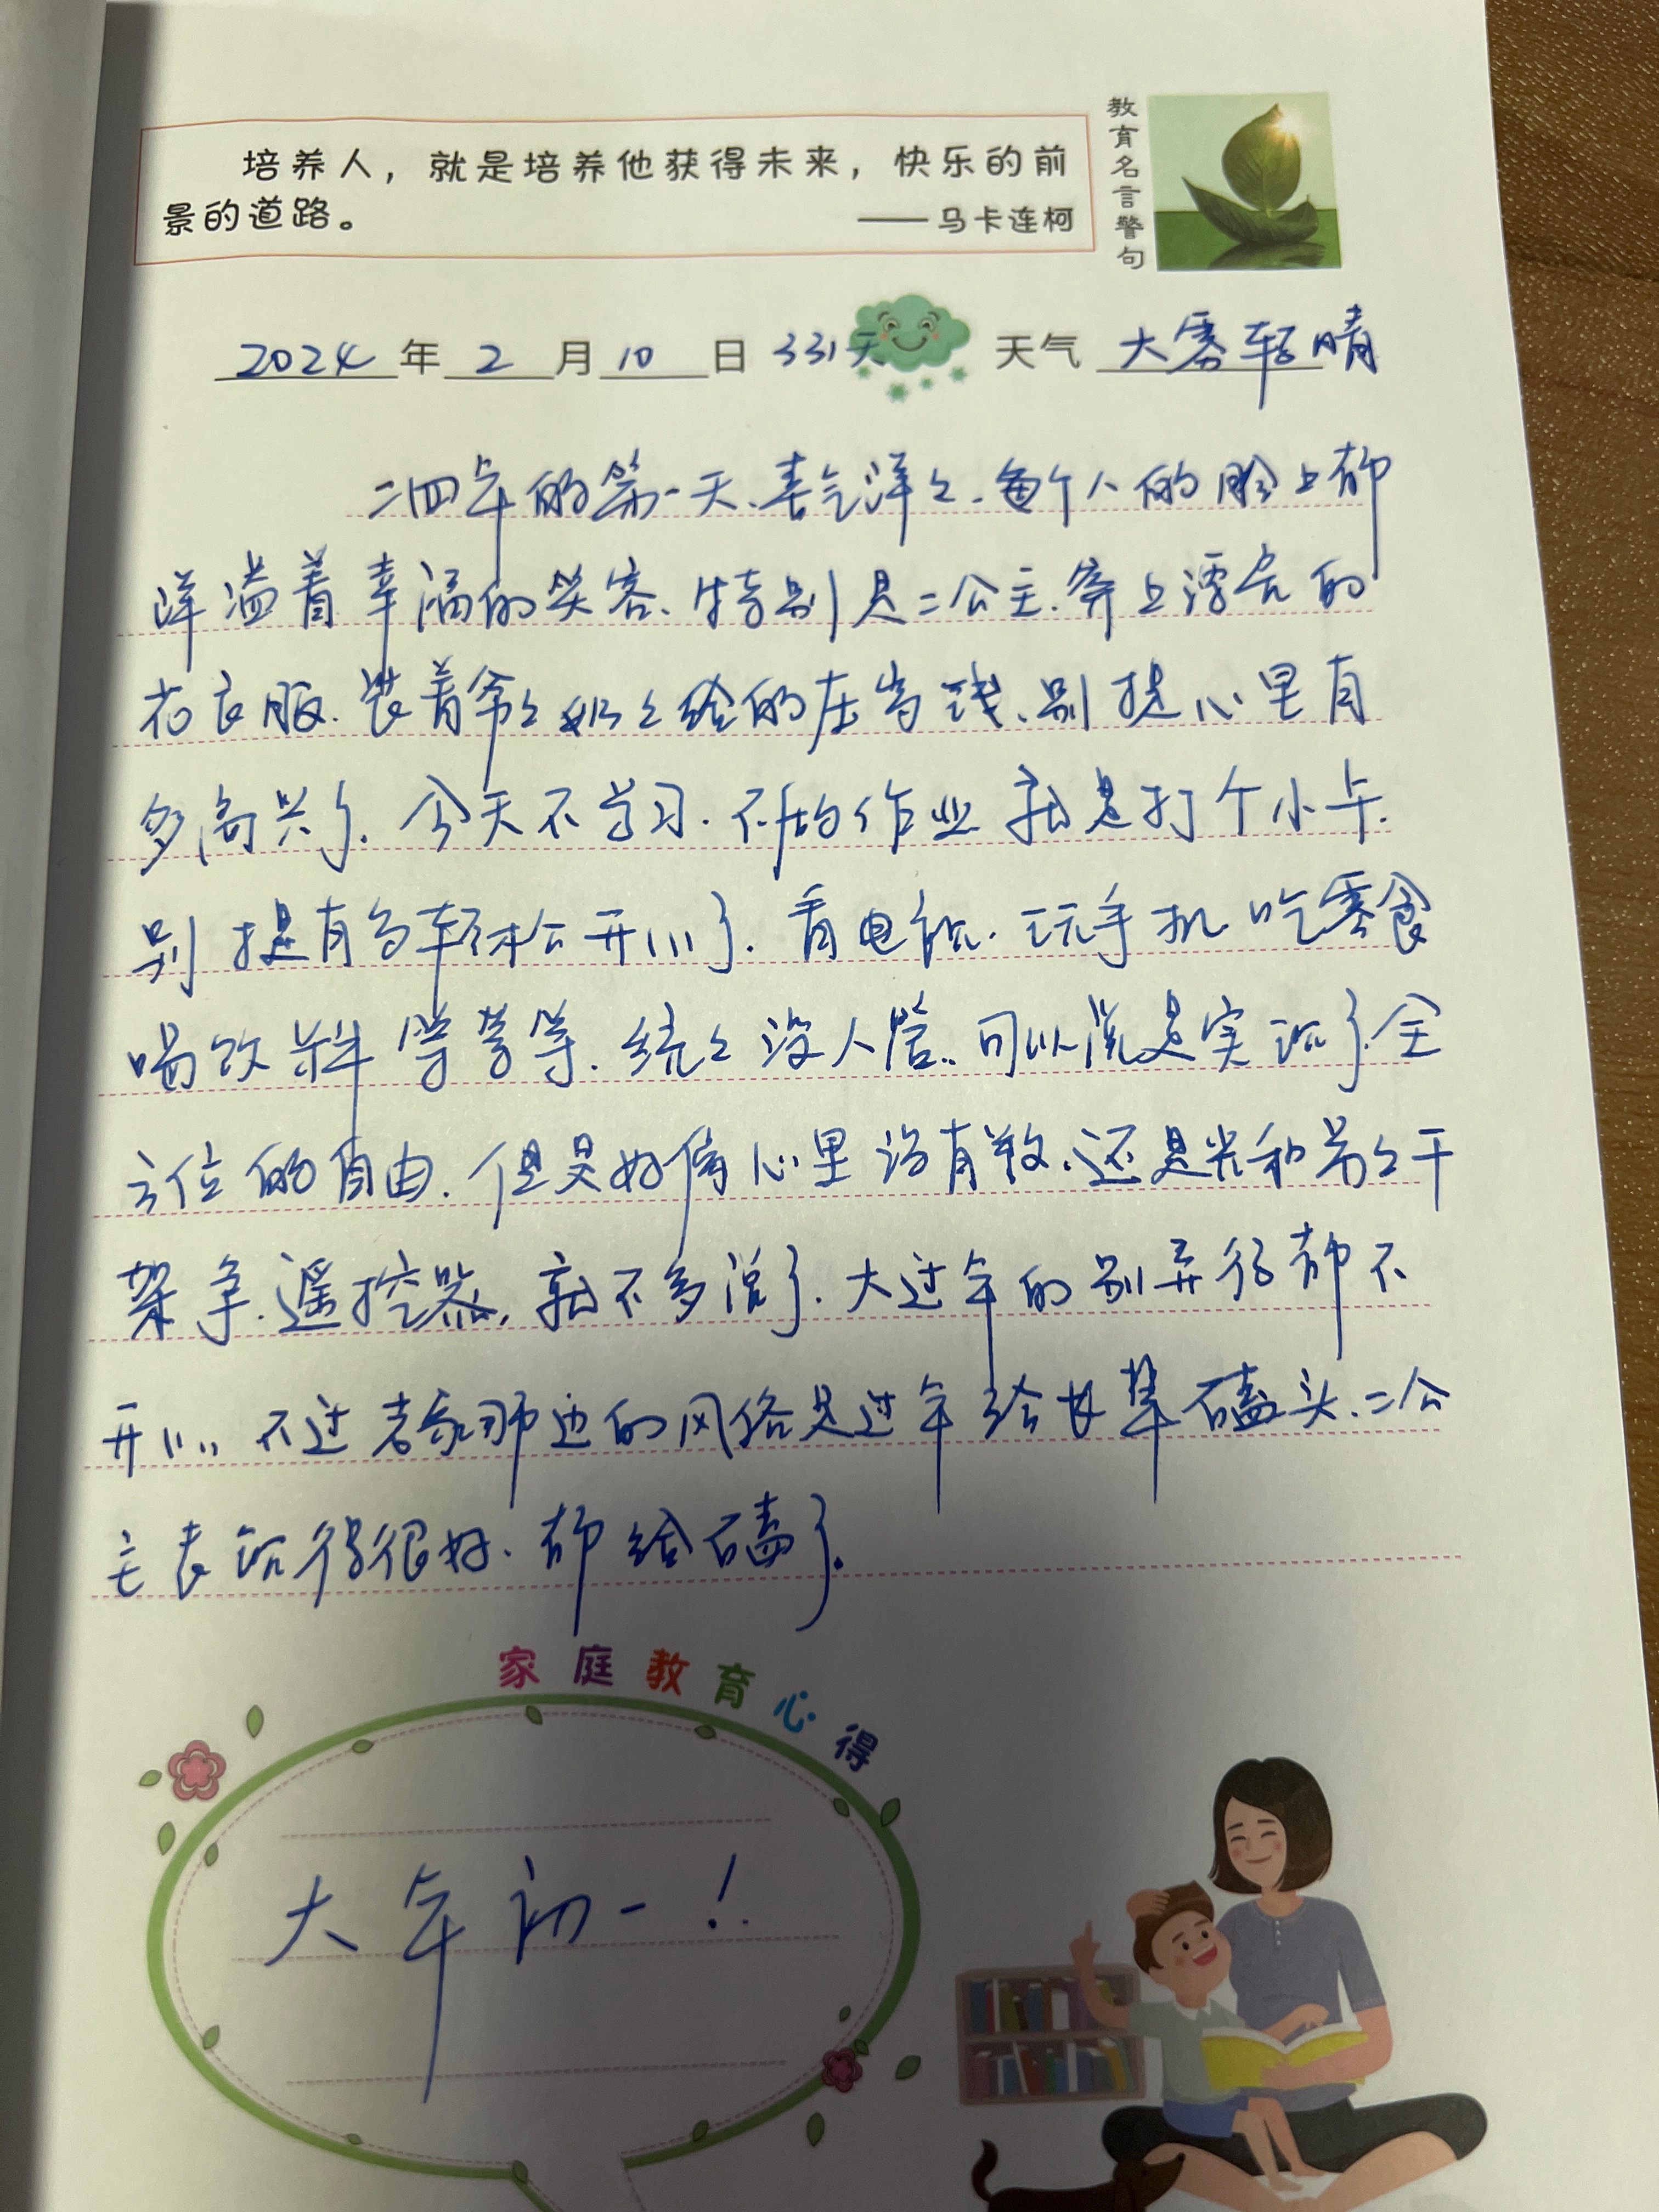 培养人，就是培养他获得未来，快乐的前
景的道路。
——马卡连柯
教育名言警句
2024年2月10日 331天 天气 大雾转晴
二四年的第一天、喜气洋々、每个人的脸上都
洋溢着幸福的笑容、特别是二公主、穿上漂亮的
花衣服、装着爷々奶々给的压岁钱、别提心里有
多高兴了、今天不学习、不做作业 就是打个小卡.
别提有多轻松开心了. 看电视. 玩手机 吃零食
喝饮料 等等等. 统々没人管.. 可以说是实现了全
方位的自由. 但是好像心里没有数、还是光和弟々干
架争.遥控器, 就不多说了. 大过年的别弄得都不
开心.. 不过老家那边的风俗是过年给长辈磕头、二公
主表现得很好、都给磕了.
家庭教育心得
大年初一！